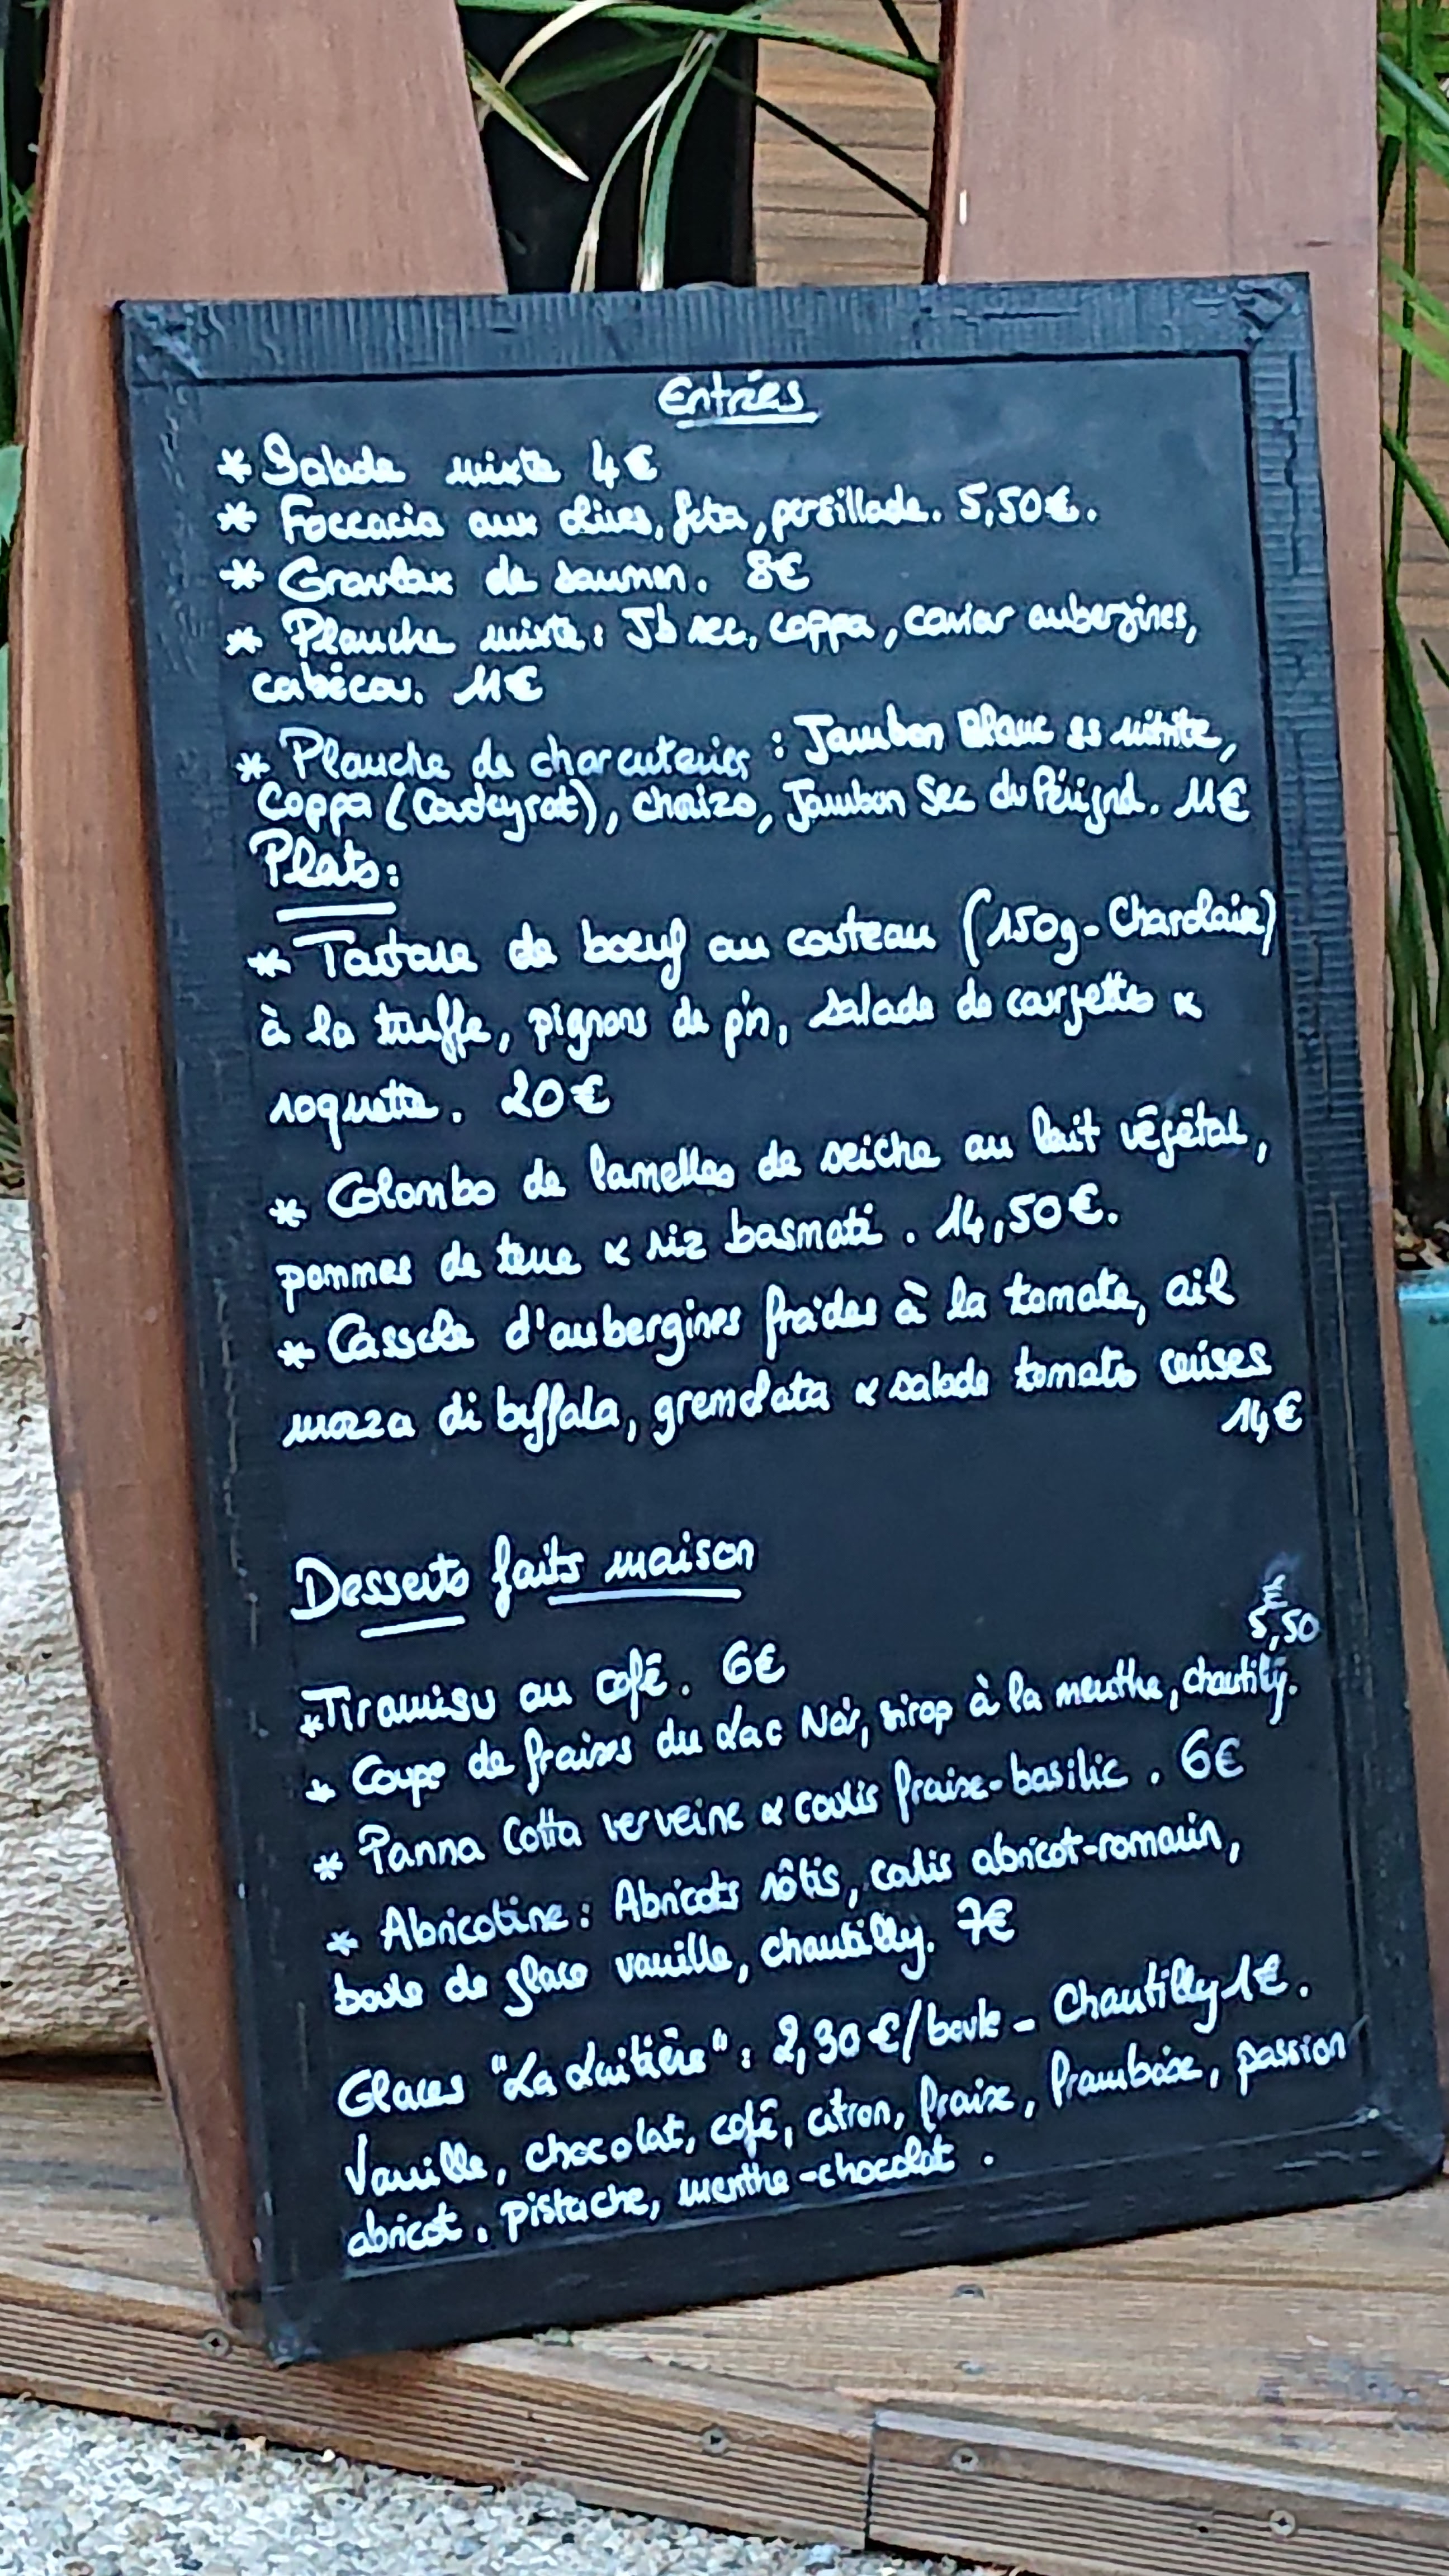 Entrées
* Salade mixte 4€
* Foccacia aux olives, feta, persillade. 5,50€.
* Gravlax de saumon. 8€
* Planche mixte : Jb sec, coppa, caviar aubergines,
cabécou. 11€
* Planche de charcuteries : Jambon Blanc ss nitrite,
Coppa (Cardeyrat), chorizo, Jambon Sec du Périgord. 11€
Plats :
* Tartare de boeuf au couteau (150g - Charolaise)
à la truffe, pignons de pin, salade de courgettes &
roquette. 20€
* Colombo de lamelles de seiche au lait végétal,
pommes de terre & riz basmati. 14,50€.
* Cassole d'aubergines froides à la tomate, ail
mozza di buffala, gremolata & salade tomates cerises
14€
Desserts faits maison
* Tiramisu au café. 6€
€
5,50
* Coupe de fraises du Lac Noir, sirop à la menthe, chantilly.
* Panna Cotta verveine & coulis fraise-basilic. 6€
* Abricotine : Abricots rôtis, coulis abricot-romarin,
boule de glace vanille, chantilly. 7€
Glaces "La Laitière" : 2,30€/boule - Chantilly 1€.
Vanille, chocolat, café, citron, fraise, framboise, passion
abricot, pistache, menthe-chocolat.